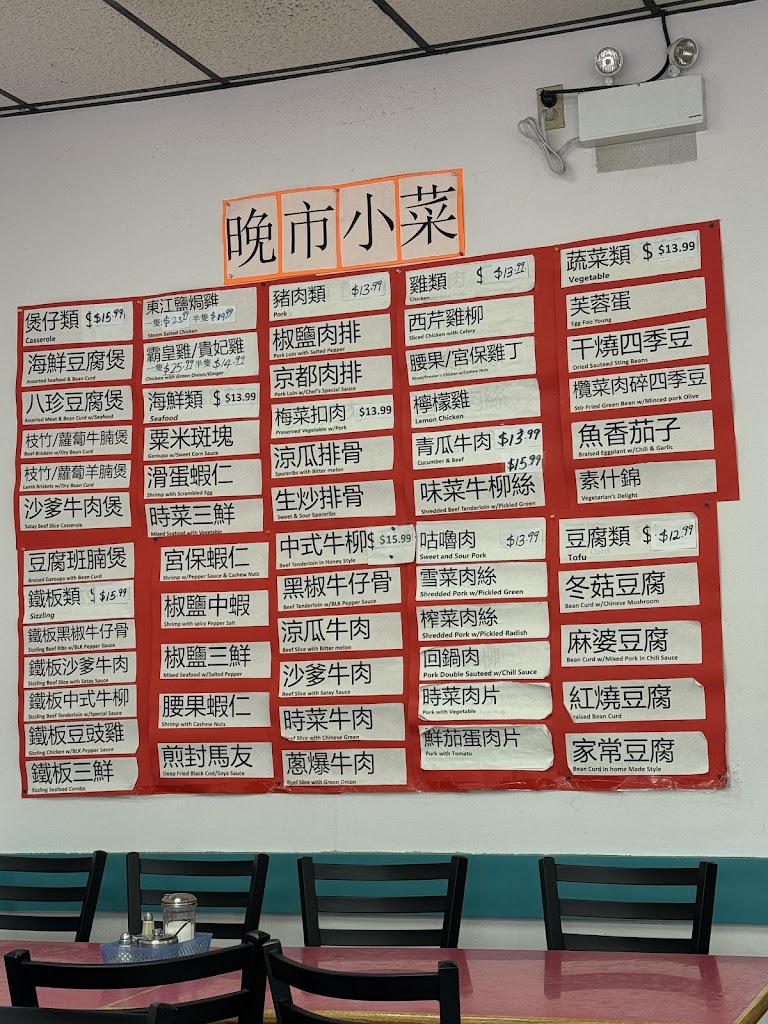 晚市小菜
煲仔類 $ $15.99
Casserole
海鮮豆腐煲
Assorted Seafood & Bean Curd
八珍豆腐煲
Assorted Meat & Bean Curd w/Seafood
枝竹/蘿蔔牛腩煲
Beef Briskets w/Dry Bean Curd
枝竹/蘿蔔羊腩煲
Lamb Briskets w/Dry Bean Curd
沙爹牛肉煲
Satay Beef Slice Casserole
豆腐班腩煲
Braised Garoupa with Bean Curd
鐵板類 $ $15.99
Sizzling
鐵板黑椒牛仔骨
Sizzling Beef Ribs w/BLK Pepper Sauce
鐵板沙爹牛肉
Sizzling Beef Slice with Satay Sauce
鐵板中式牛柳
Sizzling Beef Tenderloin w/Special Sauce
鐵板豆豉雞
Sizzling Chicken w/BLK Pepper Sauce
鐵板三鮮
Sizzling Seafood Combo
東江鹽焗雞
一隻 半隻
Steam Salted Chicken
霸皇雞/貴妃雞
一隻 $25.99 半隻 $14.99
Chicken with Green Onion/Ginger
海鮮類 $ $13.99
Seafood
粟米斑塊
Garoupa w/Sweet Corn Sauce
滑蛋蝦仁
Shrimp with Scrambled Egg
時菜三鮮
Mixed Seafood with Vegetable
宮保蝦仁
Shrimp w/Pepper Sauce & Cashew Nuts
椒鹽中蝦
Shrimp with spicy Pepper Salt
椒鹽三鮮
Mixed Seafood w/Salted Pepper
腰果蝦仁
Shrimp with Cashew Nuts
煎封馬友
Deep Fried Black Cod/Soya Sauce
豬肉類 $13.99
Pork
椒鹽肉排
Pork Loin with Salted Pepper
京都肉排
Pork Loin w/Chef's Special Sauce
梅菜扣肉 $13.99
Preserved Vegetable w/Pork
涼瓜排骨
Spareribs with Bitter melon
生炒排骨
Sweet & Sour Spareribs
中式牛柳 $ $15.99
Beef Tenderloin in Honey Style
黑椒牛仔骨
Beef Tenderloin w/BLK Pepper Sauce
涼瓜牛肉
Beef Slice with Bitter melon
沙爹牛肉
Beef Slice with Satay Sauce
時菜牛肉
Beef Slice with Chinese Green
蔥爆牛肉
Beef Slice with Green Onion
雞類 $ $13.99
Chicken
西芹雞柳
Sliced Chicken with Celery
腰果/宮保雞丁
檸檬雞
Lemon Chicken
青瓜牛肉 $13.99
Cucumber & Beef
$15.99
味菜牛柳絲
Shredded Beef Tenderloin w/Pickled Green
咕嚕肉 $13.99
Sweet and Sour Pork
雪菜肉絲
Shredded Pork w/Pickled Green
榨菜肉絲
Shredded Pork w/Pickled Radish
回鍋肉
Pork Double Sauteed w/Chill Sauce
時菜肉片
Pork with Vegetable
鮮茄蛋肉片
Pork with Tomato
蔬菜類 $ $13.99
Vegetable
芙蓉蛋
Egg Foo Young
干燒四季豆
Dried Sauteed Sting Beans
欖菜肉碎四季豆
Stir Fried Green Bean w/Minced pork Olive
魚香茄子
Braised Eggplant w/Chill & Garlic
素什錦
Vegetarian's Delight
豆腐類 $ $12.99
Tofu
冬菇豆腐
Bean Curd w/Chinese Mushroom
麻婆豆腐
Bean Curd w/Mixed Pork in Chili Sauce
紅燒豆腐
Braised Bean Curd
家常豆腐
Bean Curd in home Made Style